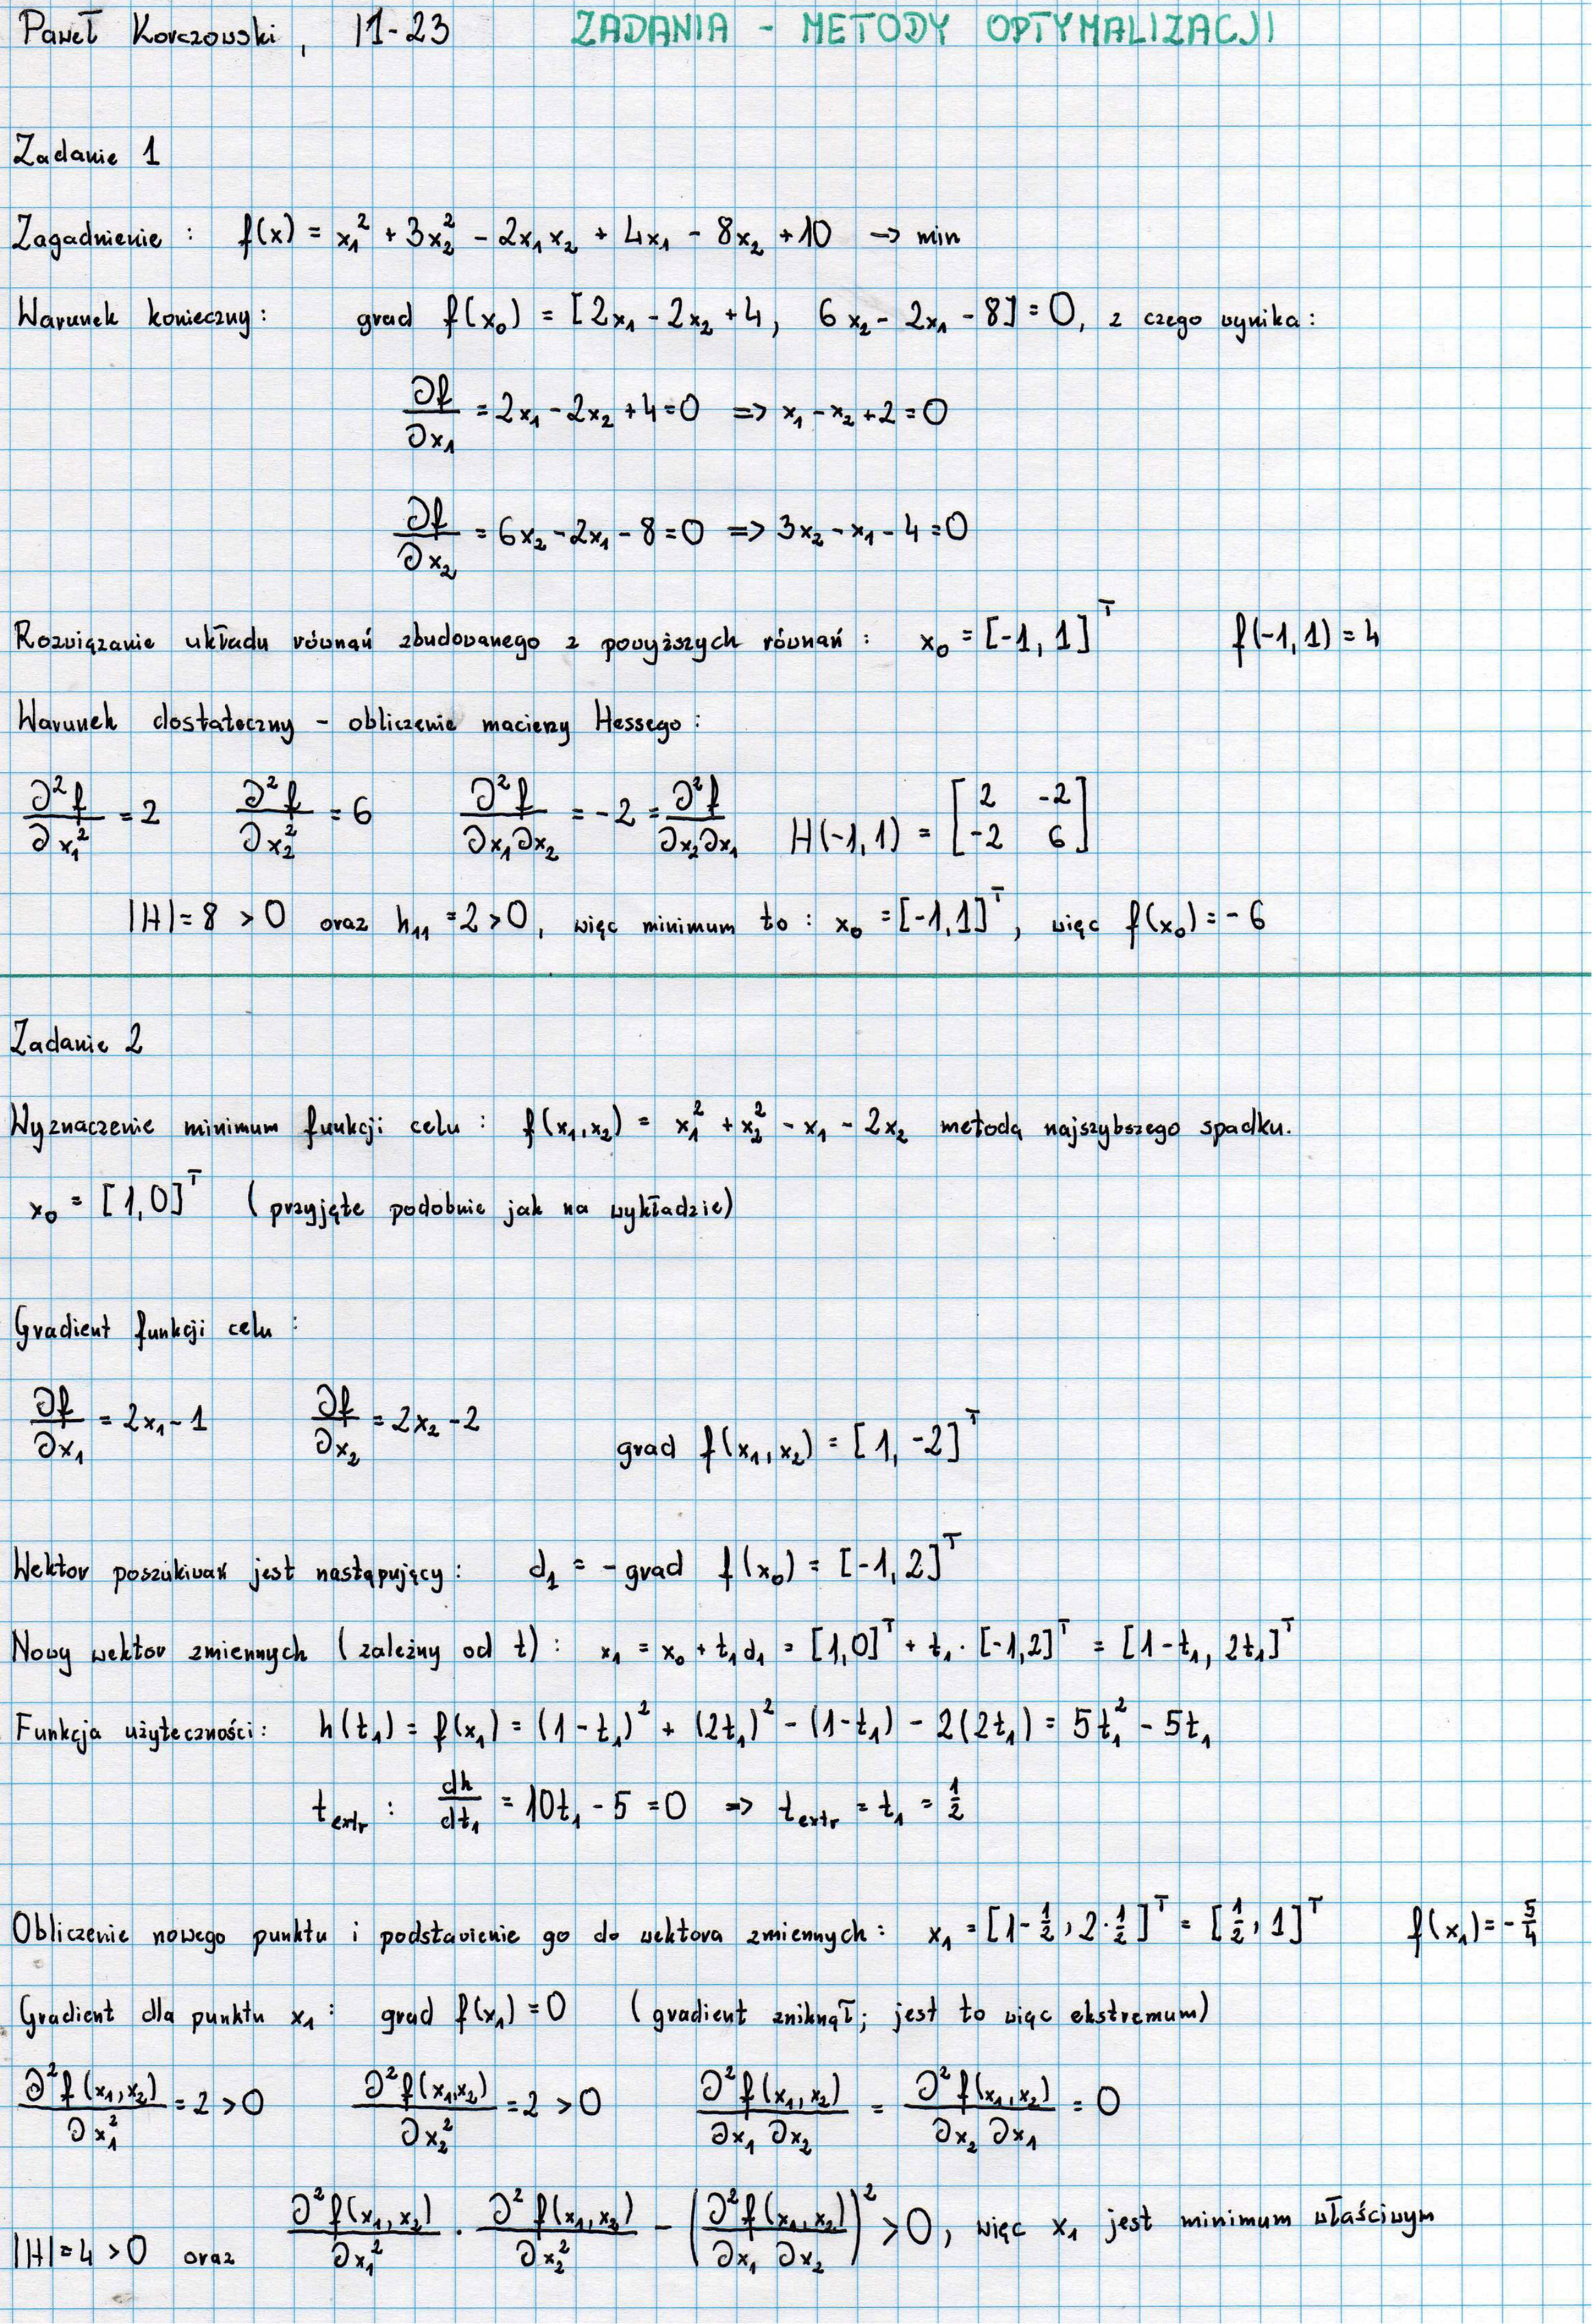 Paweł Korczowski, I1-23 ZADANIA - METODY OPTYMALIZACJI
Zadanie 1
Zagadnienie: f(x) = x₁² + 3x₂² - 2x₁x₂ + 4x₁ - 8x₂ + 10 → min
Warunek konieczny: grad f(x₀) = [2x₁ - 2x₂ + 4, 6x₂ - 2x₁ - 8] = 0, z czego wynika:
∂f/∂x₁ = 2x₁ - 2x₂ + 4 = 0 => x₁ - x₂ + 2 = 0
∂f/∂x₂ = 6x₂ - 2x₁ - 8 = 0 => 3x₂ - x₁ - 4 = 0
Rozwiązanie układu równań zbudowanego z powyższych równań: x₀ = [-1, 1]ᵀ f(-1,1) = 4
Warunek dostateczny - obliczenie macierzy Hessego:
∂²f/∂x₁² = 2 ∂²f/∂x₂² = 6 ∂²f/∂x₁∂x₂ = -2 = ∂²f/∂x₂∂x₁ H(-1,1) = [2 -2; -2 6]
|H| = 8 > 0 oraz h₁₁ = 2 > 0, więc minimum to: x₀ = [-1,1]ᵀ, więc f(x₀) = -6
Zadanie 2
Wyznaczenie minimum funkcji celu: f(x₁,x₂) = x₁² + x₂² - x₁ - 2x₂ metodą najszybszego spadku.
x₀ = [1,0]ᵀ (przyjęte podobnie jak na wykładzie)
Gradient funkcji celu:
∂f/∂x₁ = 2x₁ - 1 ∂f/∂x₂ = 2x₂ - 2 grad f(x₁,x₂) = [1, -2]ᵀ
Wektor poszukiwań jest następujący: d₁ = - grad f(x₀) = [-1, 2]ᵀ
Nowy wektor zmiennych (zależny od t): x₁ = x₀ + t₁d₁ = [1,0]ᵀ + t₁·[-1,2]ᵀ = [1-t₁, 2t₁]ᵀ
Funkcja użyteczności: h(t₁) = f(x₁) = (1-t₁)² + (2t₁)² - (1-t₁) - 2(2t₁) = 5t₁² - 5t₁
t_extr: dh/dt₁ = 10t₁ - 5 = 0 => t_extr = t₁ = 1/2
Obliczenie nowego punktu i podstawienie go do wektora zmiennych: x₁ = [1-1/2, 2·1/2]ᵀ = [1/2, 1]ᵀ f(x₁) = -5/4
Gradient dla punktu x₁: grad f(x₁) = 0 (gradient zniknął; jest to więc ekstremum)
∂²f(x₁,x₂)/∂x₁² = 2 > 0 ∂²f(x₁,x₂)/∂x₂² = 2 > 0 ∂²f(x₁,x₂)/∂x₁ ∂x₂ = ∂²f(x₁,x₂)/∂x₂ ∂x₁ = 0
|H| = 4 > 0 oraz ∂²f(x₁,x₂)/∂x₁² · ∂²f(x₁,x₂)/∂x₂² - (∂²f(x₁,x₂)/∂x₁ ∂x₂)² > 0, więc x₁ jest minimum właściwym